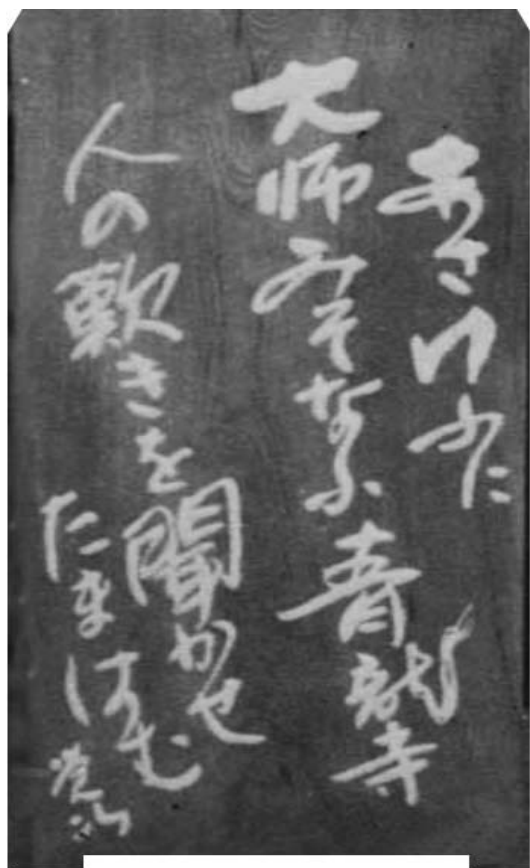 あさゆふに
大师みそなふ青龍寺
人の歎きを聞かせ
たまはむ